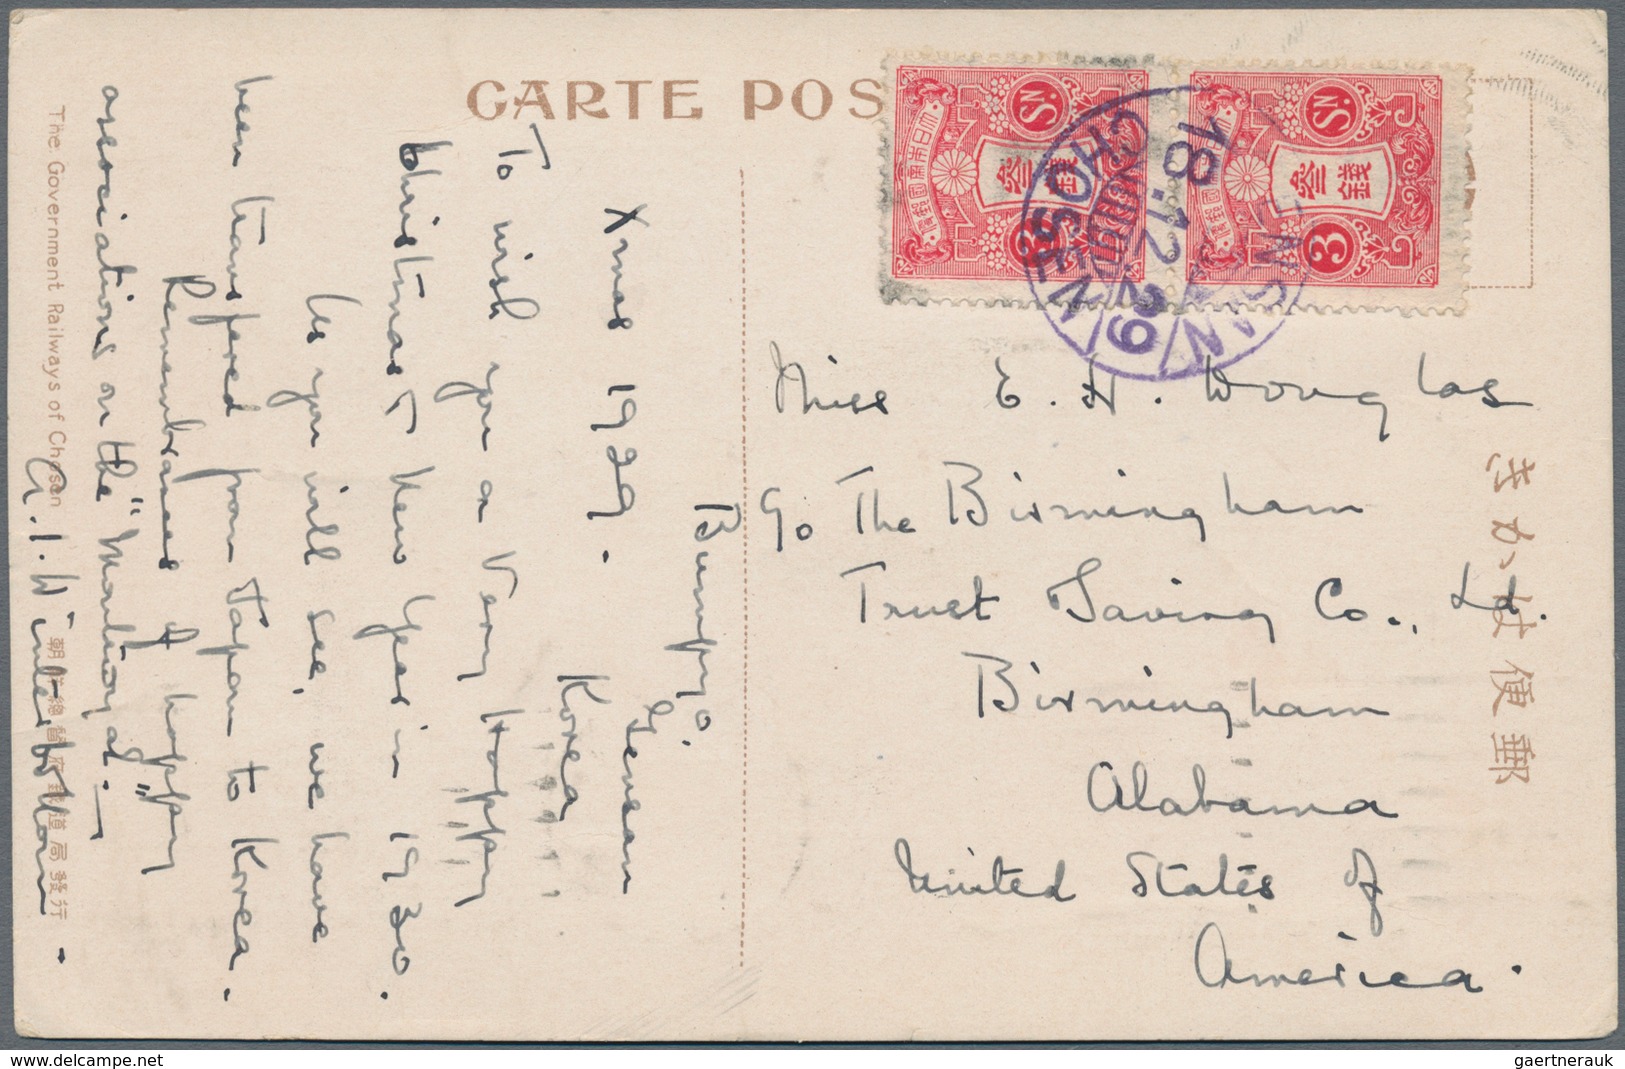 CARTE POS
Bunpyo.
Gensan
Korea
Xmas 1929.
To wish you a Very Happy
Christmas & New Year in 1930.
As you will see, we have
been transfered from Japan to Korea.
Remembrances of happy
associations on the "Montroyal" —
A. I. Winterbottom
The Government Railways of Chosen
朝鮮總督府鐵道局發行
Miss E. H. Douglas
c/o The Birmingham
Trust Saving Co., Ld.
Birmingham
Alabama
United States of
America.
きがは便郵
大日本帝國郵便
参銭
3 Sn.
大日本帝國郵便
参銭
3 Sn.
GENSAN
18.12.29
CHOSEN
www.delcampe.net
gaertnerauk